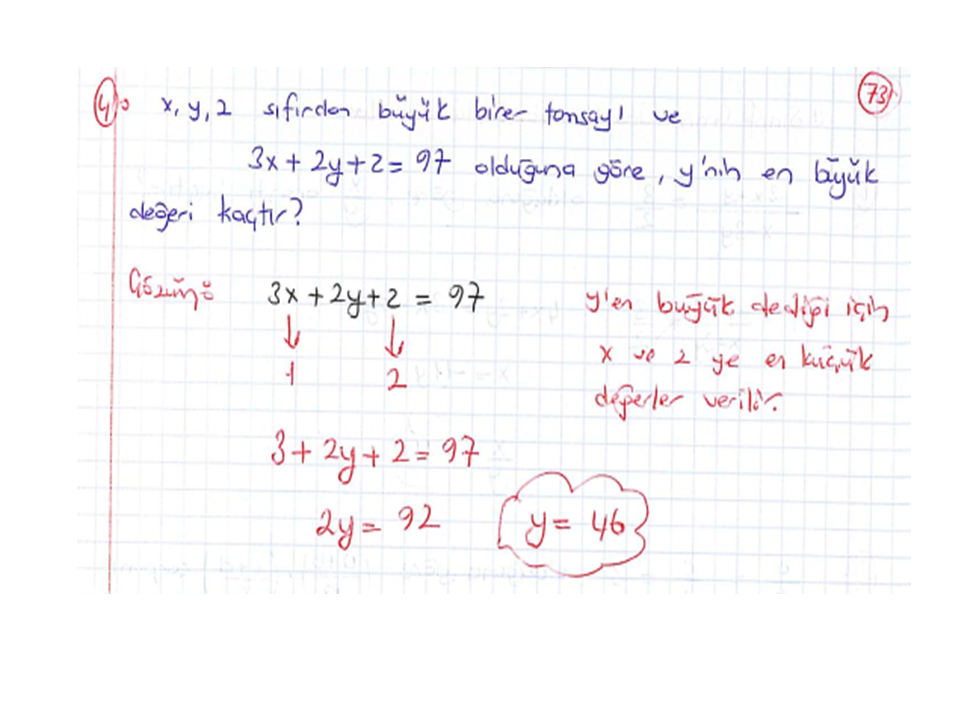 4) x, y, z sıfırdan büyük birer tamsayı ve
73
3x + 2y + z = 97 olduğuna göre, y'nin en büyük
değeri kaçtır?
Çözüm: 3x + 2y + z = 97
y'en büyük dediği için
x ve z ye en küçük
1 2
değerler verilir.
3 + 2y + 2 = 97
2y = 92 y = 46